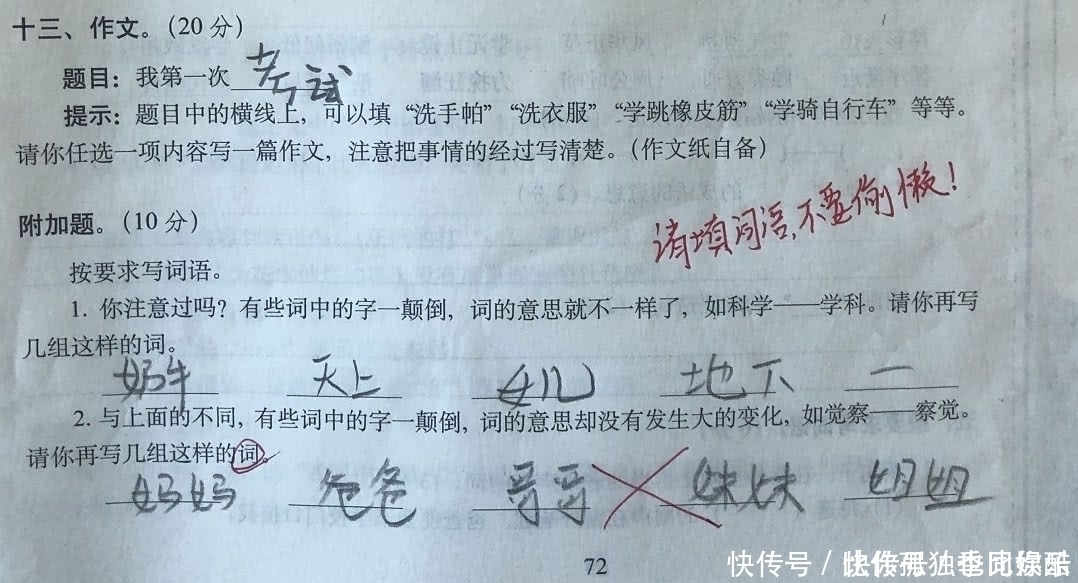 十三、作文。(20 分)
题目：我第一次 考试
提示：题目中的横线上，可以填“洗手帕”“洗衣服”“学跳橡皮筋”“学骑自行车”等等。
请你任选一项内容写一篇作文，注意把事情的经过写清楚。(作文纸自备)
请填词语,不要偷懒!
附加题。(10 分)
按要求写词语。
1. 你注意过吗？有些词中的字一颠倒，词的意思就不一样了，如科学——学科。请你再写
几组这样的词。
奶牛 天上 女儿 地下 一
2. 与上面的不同，有些词中的字一颠倒，词的意思却没有发生大的变化，如觉察——察觉。
请你再写几组这样的词。
妈妈 爸爸 哥哥 妹妹 姐姐
72
快传号 /